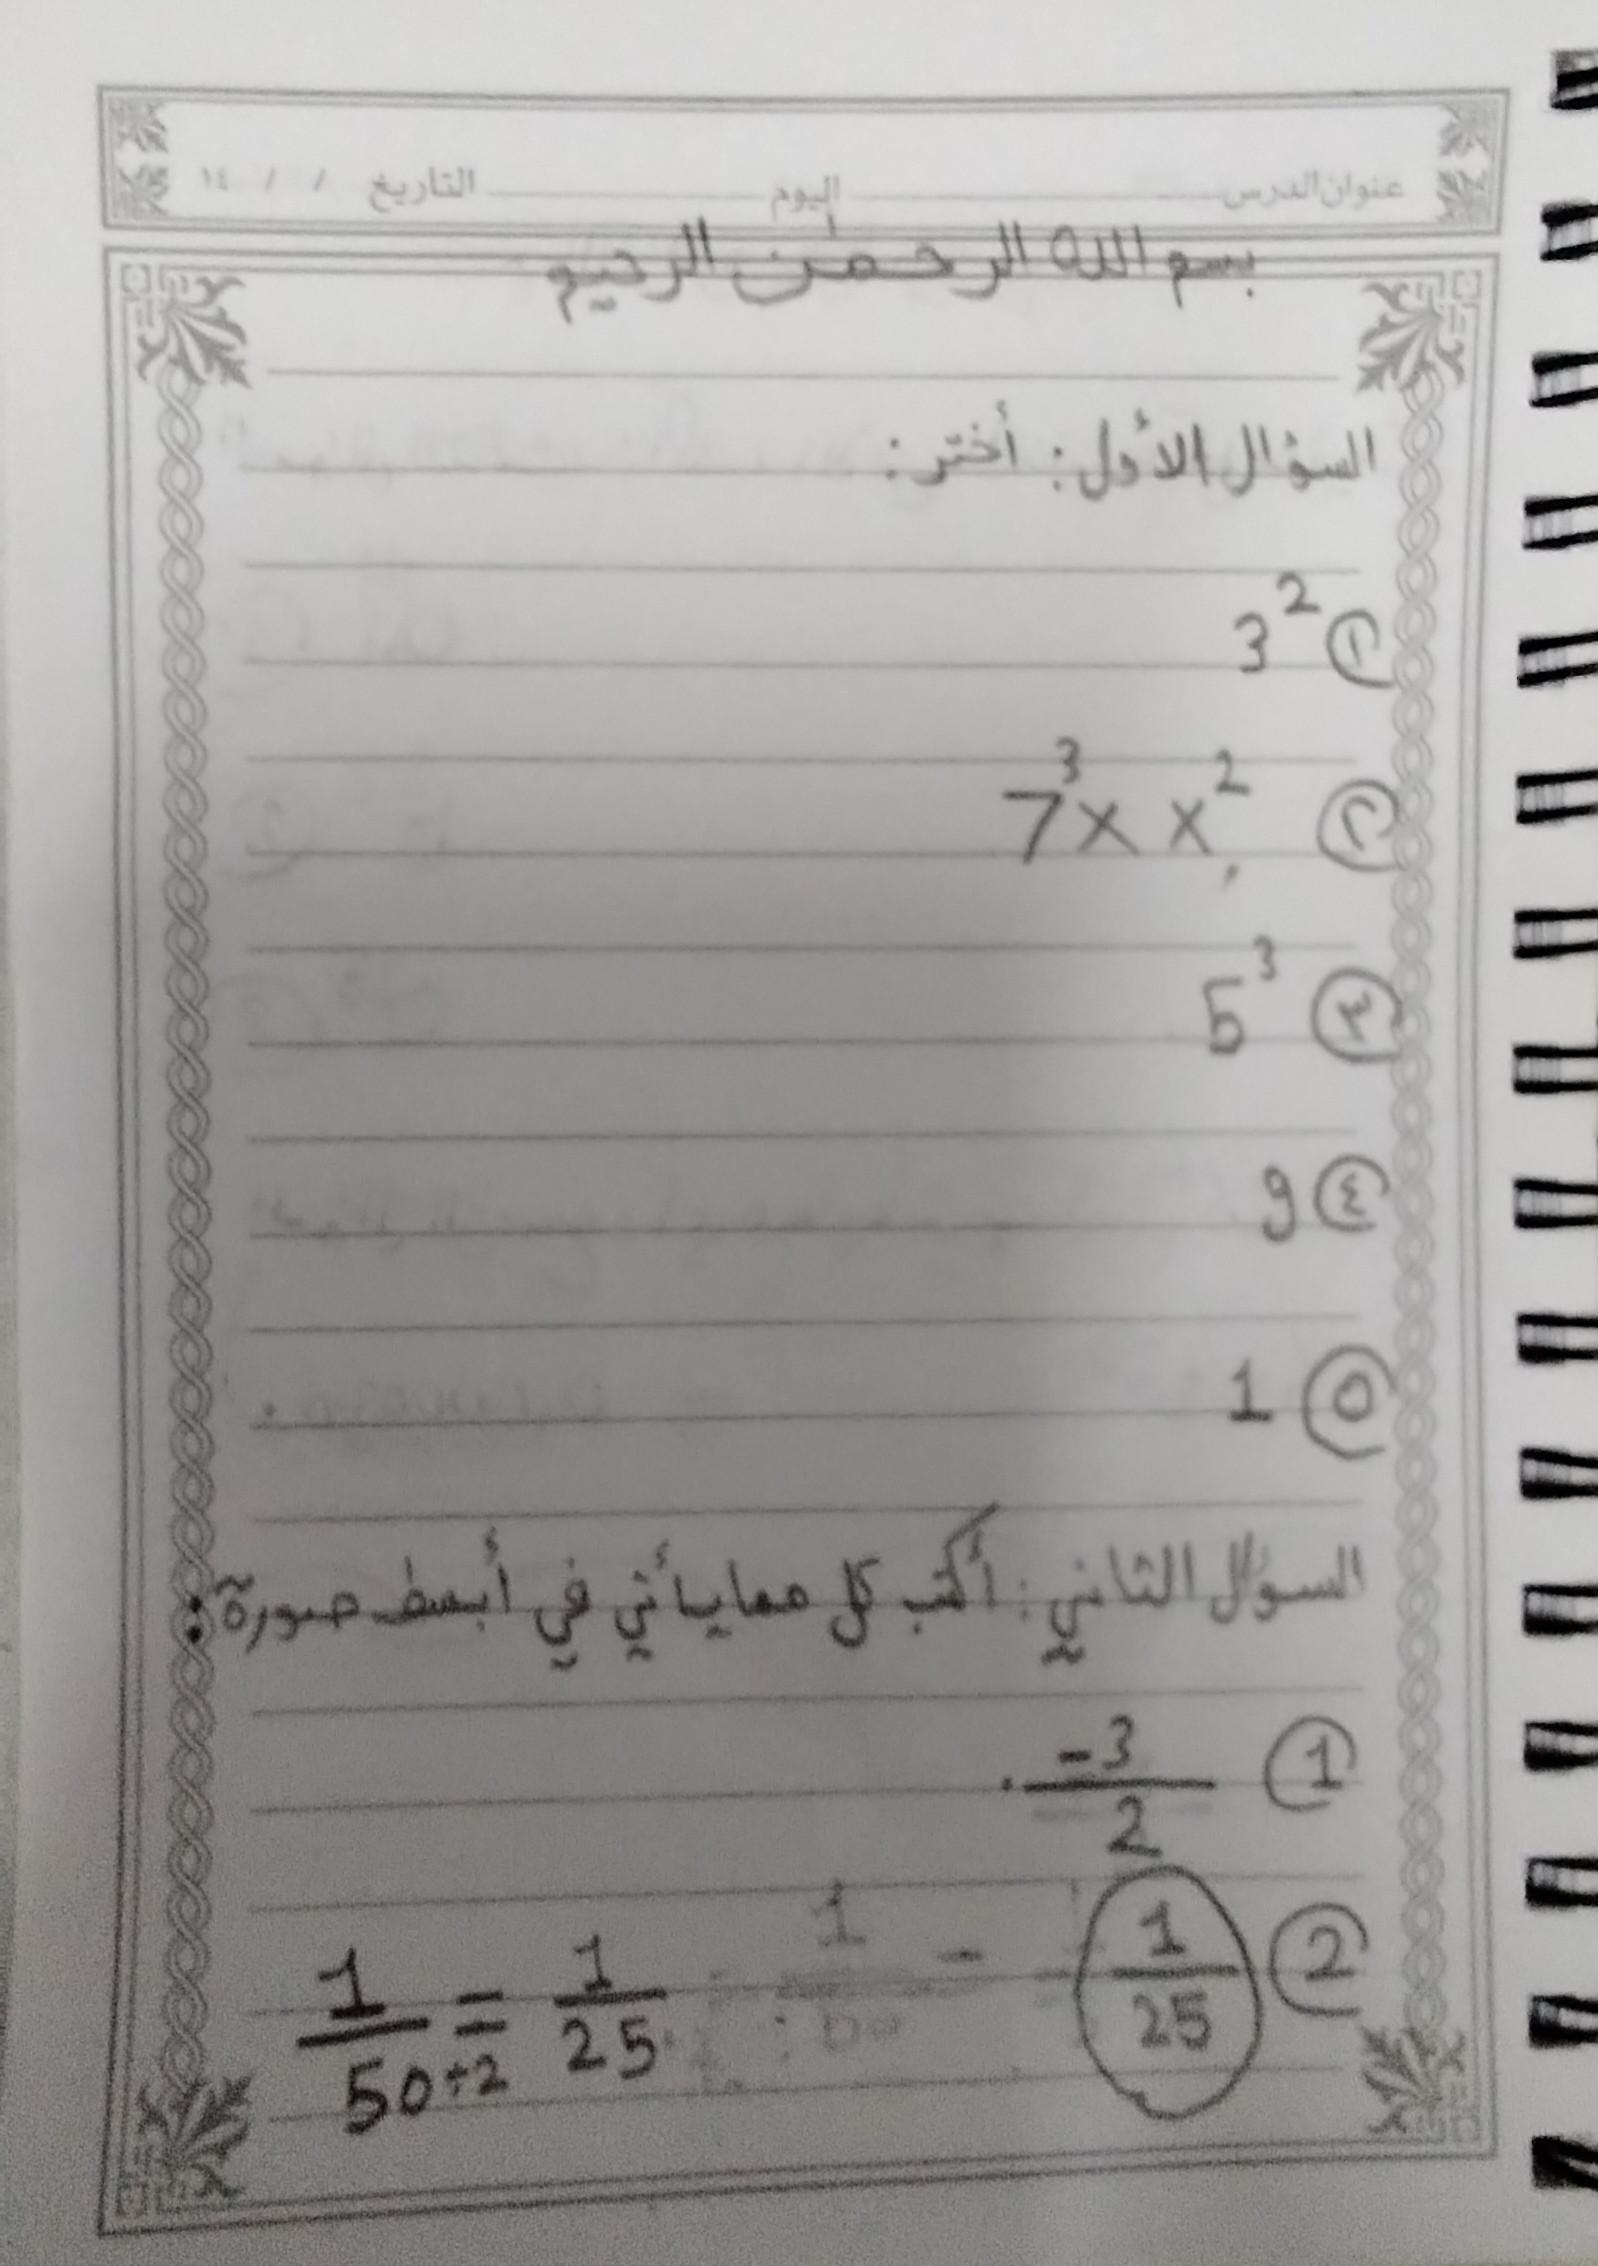 عنوان الدرس اليوم التاريخ / / ١٤
بسم الله الرحمٰن الرحيم
السؤال الأول: أختر:
① 3²
② 7³ x x²
③ 5³
④ 9
⑤ 1
السؤال الثاني: أكتب كل مما يأتي في أبسط صورة:
① -3/2
② 1/25 1/50÷2 = 1/25